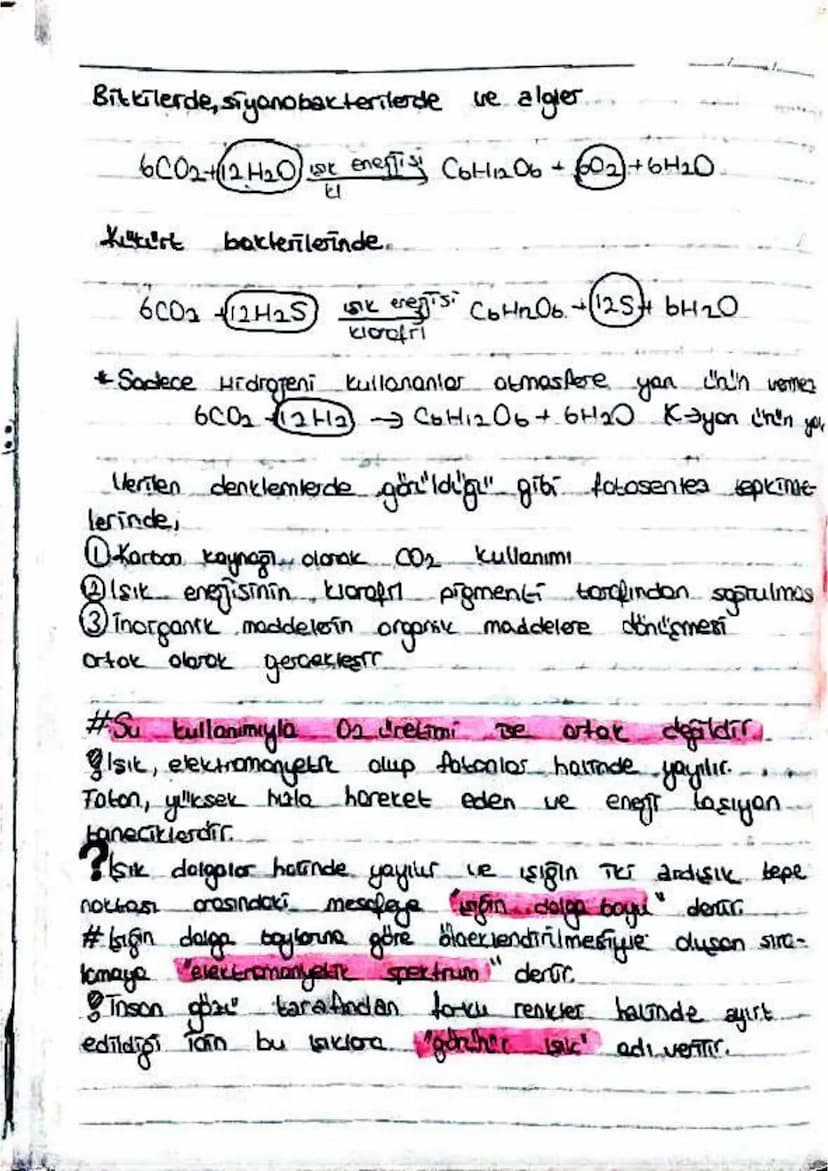 Bitkilerde, siyanobakterilerde ve algler
6CO2+12H2O ışık enerjisi C6H12O6 + 6O2 + 6H2O
kl
Kükürt bakterilerinde
6CO2 + 12H2S ışık enerjisi C6H12O6 + 12S + 6H2O
klorofil
* Sadece Hidrojeni kullananlar atmosfere yan ürün vermez
6CO2 + 12H2 → C6H12O6 + 6H2O K→yan ürün yok
Verilen denklemlerde görüldüğü gibi fotosentez tepkime-
lerinde;
① Karbon kaynağı olarak CO2 kullanımı
② Işık enerjisinin klorofil pigmenti tarafından soğrulması
③ İnorganik maddelerin organik maddelere dönüşmesi
ortak olarak gerçekleşir
#Su kullanımıyla O2 üretimi ise ortak değildir.
Işık, elektromanyetik olup fotonlar halinde yayılır.
Foton, yüksek hızla hareket eden ve enerji taşıyan
taneciklerdir.
? Işık dalgalar halinde yayılır ve ışığın iki ardışık tepe
noktası arasındaki mesafeye "ışığın dalga boyu" denir.
# Işığın dalga boylarına göre ölçeklendirilmesiyle oluşan sıra-
lamaya "elektromanyetik spektrum" denir.
İnsan gözü tarafından farklı renkler halinde ayırt
edildiği için bu ışıklara "görünür ışık" adı verilir.